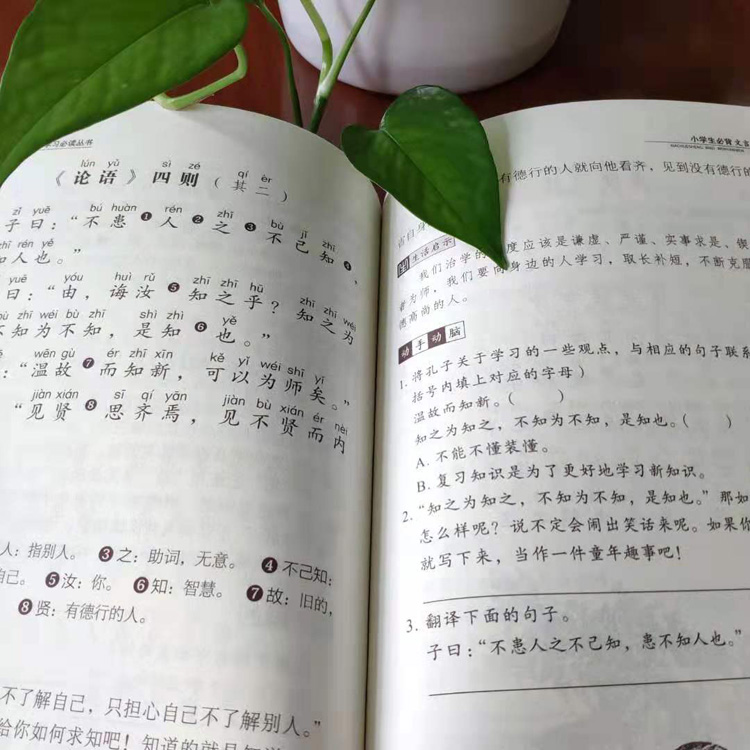 习必读丛书
lún yǔ sì zé qí èr
《论语》四则（其二）
zǐ yuē bú huàn rén zhī bù jǐ zhī
子曰：“不患❶人❷之❸不己知❹，
zhī rén yě
知人也。”
yuē yóu huì rǔ zhī zhī hū zhī zhī wéi
曰：“由，诲汝❺知之乎？知之为
bù zhī wéi bù zhī shì zhì yě
不知为不知，是知❻也。”
wēn gù ér zhī xīn kě yǐ wéi shī yǐ
：“温故❼而知新，可以为师矣。”
jiàn xián sī qí yān jiàn bù xián ér nèi
“见贤❽思齐焉，见不贤而内
人：指别人。❸之：助词，无意。❹不己知：
自己。❺汝：你。❻知：智慧。❼故：旧的，
❽贤：有德行的人。
不了解自己，只担心自己不了解别人。”
给你如何求知吧！知道的就是知道
小学生必背文言
有德行的人就向他看齐，见到没有德行的
生活启示
我们治学的度应该是谦虚、严谨、实事求是、
者为师，我们要向身边的人学习，取长补短，不断克服
德高尚的人。
动手动脑
1. 将孔子关于学习的一些观点，与相应的句子联系
括号内填上对应的字母）
温故而知新。（ ）
知之为知之，不知为不知，是知也。（ ）
A. 不能不懂装懂。
B. 复习知识是为了更好地学习新知识。
2. “知之为知之，不知为不知，是知也。”那如
怎么样呢？说不定会闹出笑话来呢。如果你
就写下来，当作一件童年趣事吧！
3. 翻译下面的句子。
子曰：“不患人之不己知，患不知人也。”